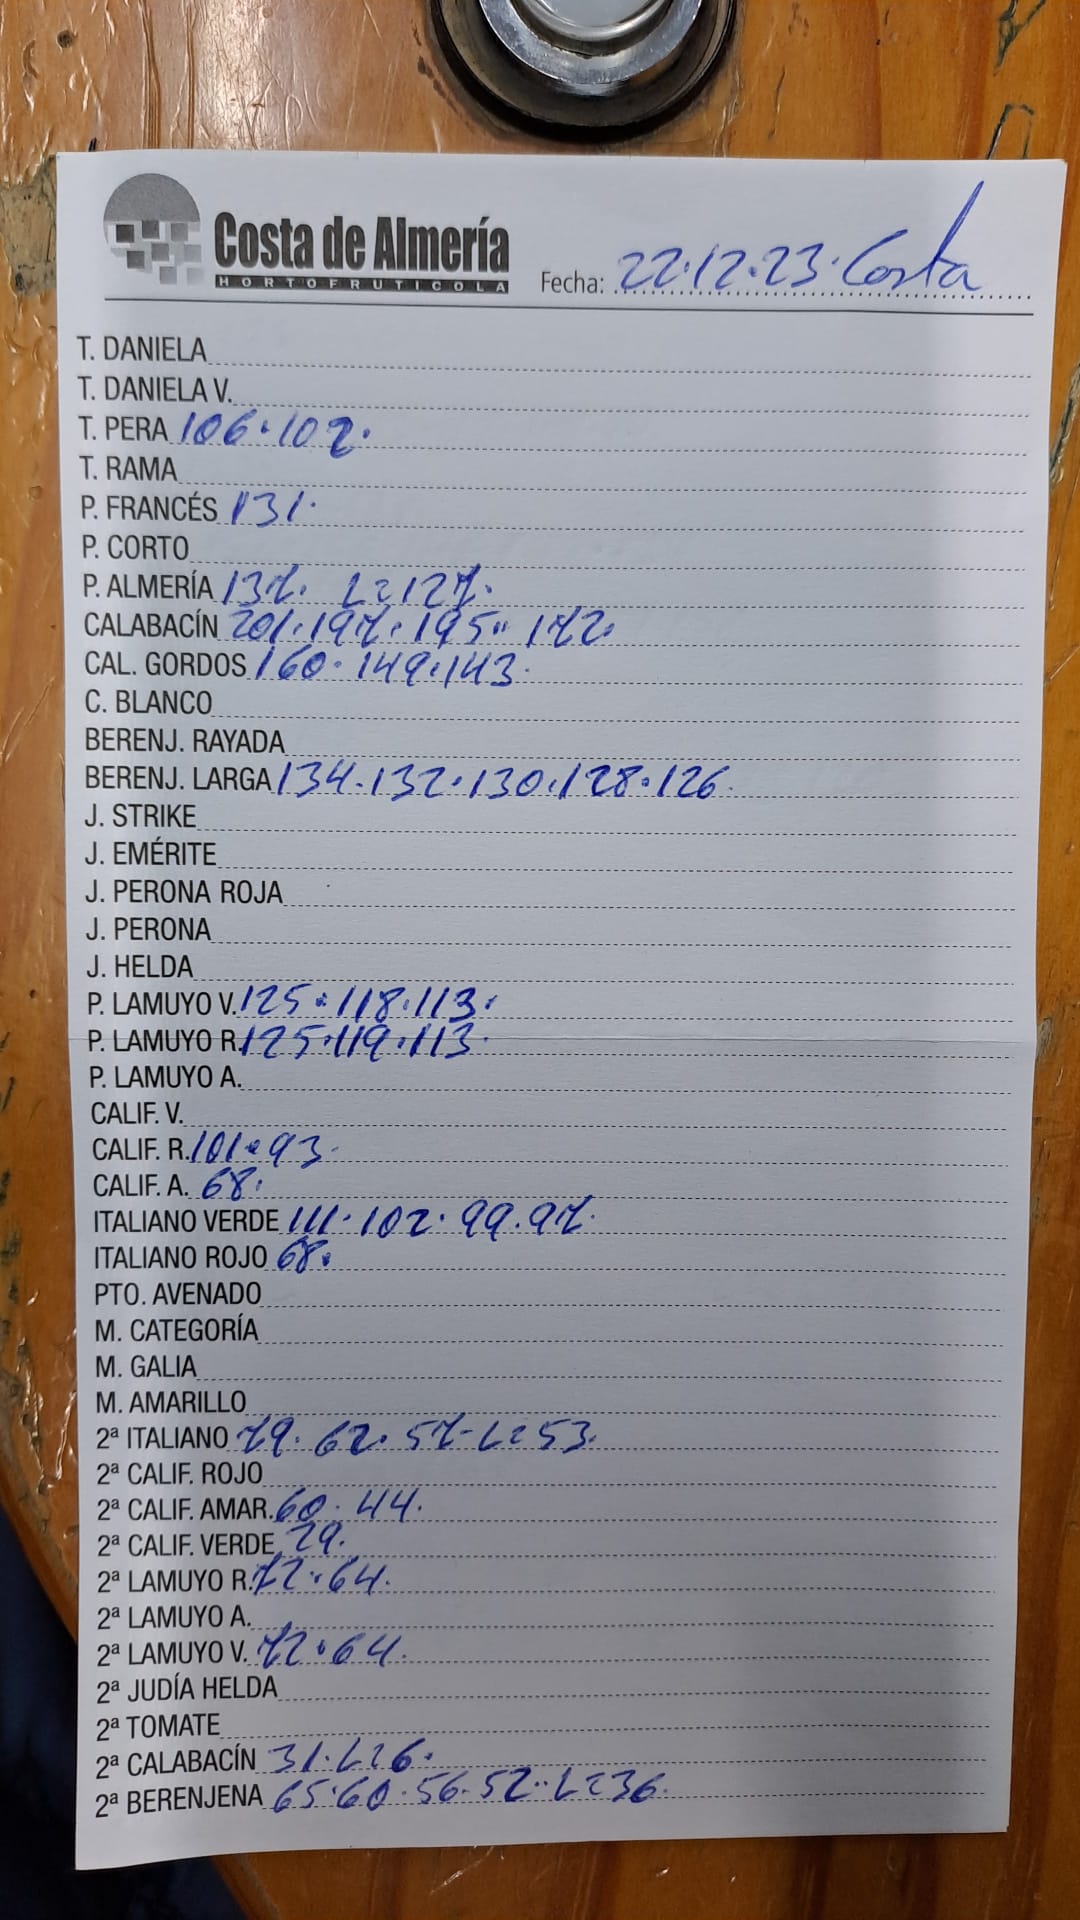 Costa de Almería
HORTOFRUTICOLA
Fecha: 22.12.23. Costa
T. DANIELA
T. DANIELA V.
T. PERA 106.102.
T. RAMA
P. FRANCÉS 131.
P. CORTO
P. ALMERÍA 137. L=127.
CALABACÍN 201.197.195" 172.
CAL. GORDOS 160.149.143.
C. BLANCO
BERENJ. RAYADA
BERENJ. LARGA 134.132.130.128.126.
J. STRIKE
J. EMÉRITE
J. PERONA ROJA
J. PERONA
J. HELDA
P. LAMUYO V. 125.118.113.
P. LAMUYO R. 125.119.113.
P. LAMUYO A.
CALIF. V.
CALIF. R. 101.93.
CALIF. A. 68.
ITALIANO VERDE 111.102.99.97.
ITALIANO ROJO 68.
PTO. AVENADO
M. CATEGORÍA
M. GALIA
M. AMARILLO
2ª ITALIANO 79.62.57-L=53.
2ª CALIF. ROJO
2ª CALIF. AMAR. 60.44.
2ª CALIF. VERDE 29.
2ª LAMUYO R. 72.64.
2ª LAMUYO A.
2ª LAMUYO V. 72.64.
2ª JUDÍA HELDA
2ª TOMATE
2ª CALABACÍN 31.L=6.
2ª BERENJENA 65.60.56.52..L=36.